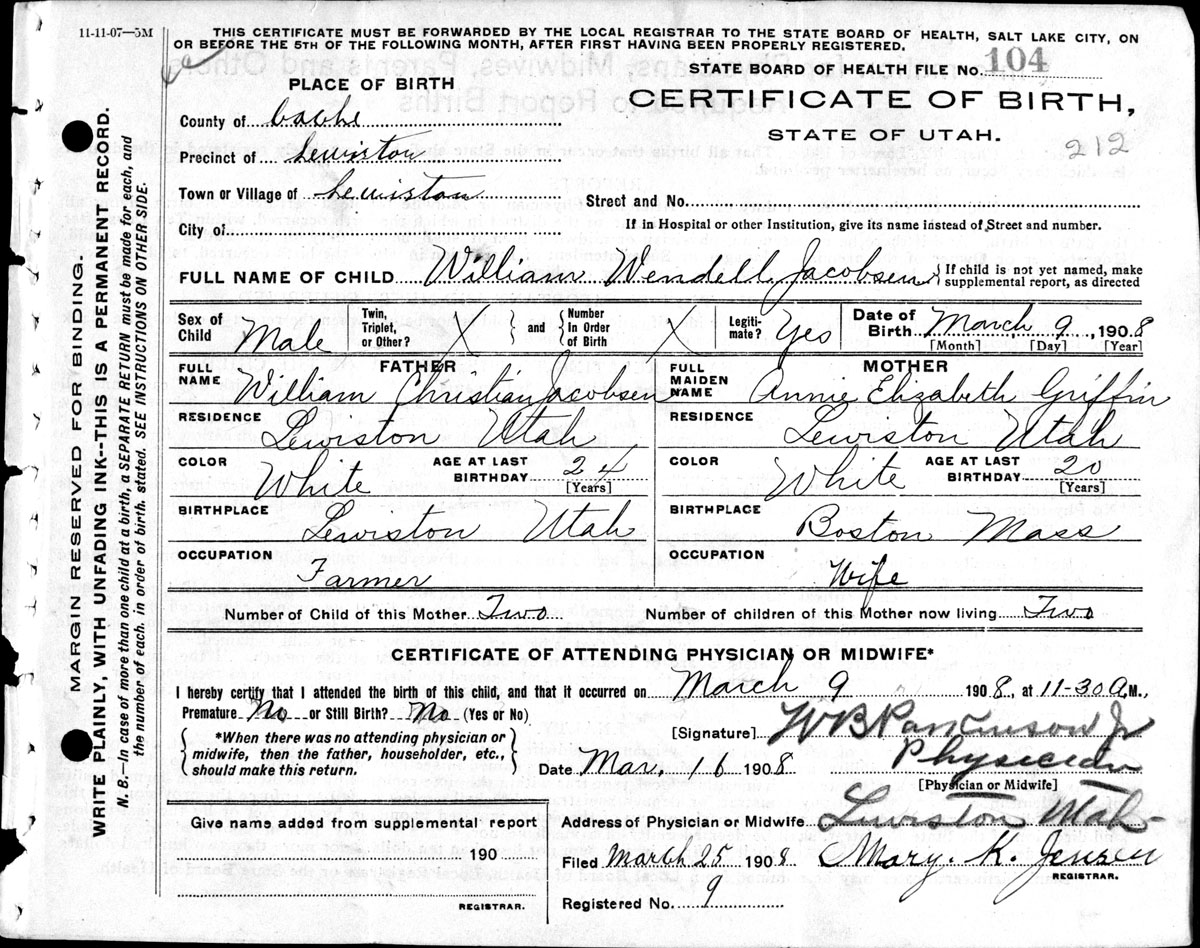 11-11-07—5M
THIS CERTIFICATE MUST BE FORWARDED BY THE LOCAL REGISTRAR TO THE STATE BOARD OF HEALTH, SALT LAKE CITY, ON
OR BEFORE THE 5TH OF THE FOLLOWING MONTH, AFTER FIRST HAVING BEEN PROPERLY REGISTERED.
STATE BOARD OF HEALTH FILE No. 104
PLACE OF BIRTH
CERTIFICATE OF BIRTH,
STATE OF UTAH.
212
County of Cache
Precinct of Lewiston
Town or Village of Lewiston
Street and No.
City of
If in Hospital or other Institution, give its name instead of Street and number.
FULL NAME OF CHILD William Wendell Jacobsen } If child is not yet named, make supplemental report, as directed
Sex of Child Male Twin, Triplet, or Other? X } and { Number In Order of Birth X Legiti- mate? Yes Date of Birth March 9, 1908
[Month] [Day] [Year]
FATHER
FULL NAME William Christian Jacobsen
RESIDENCE Lewiston Utah
COLOR White AGE AT LAST BIRTHDAY 24
[Years]
BIRTHPLACE Lewiston Utah
OCCUPATION Farmer
MOTHER
FULL MAIDEN NAME Annie Elizabeth Griffin
RESIDENCE Lewiston Utah
COLOR White AGE AT LAST BIRTHDAY 20
[Years]
BIRTHPLACE Boston Mass
OCCUPATION Wife
Number of Child of this Mother Two Number of children of this Mother now living Two
CERTIFICATE OF ATTENDING PHYSICIAN OR MIDWIFE*
I hereby certify that I attended the birth of this child, and that it occurred on March 9 1908, at 11-30 A.M.,
Premature No or Still Birth? No (Yes or No)
[Signature] W B Parkinson Jr
{ *When there was no attending physician or
midwife, then the father, householder, etc.,
should make this return. }
Date Mar, 16 1908 Physician
[Physician or Midwife]
Give name added from supplemental report
190
REGISTRAR.
Address of Physician or Midwife Lewiston Utah
Filed March 25 1908 Mary. K. Jensen
REGISTRAR.
Registered No. 9
MARGIN RESERVED FOR BINDING.
WRITE PLAINLY, WITH UNFADING INK--THIS IS A PERMANENT RECORD.
N. B.—In case of more than one child at a birth, a SEPARATE RETURN must be made for each, and
the number of each, in order of birth, stated. SEE INSTRUCTIONS ON OTHER SIDE.